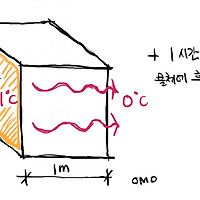 + 1시간
물체에
1℃
0℃
1m
omo